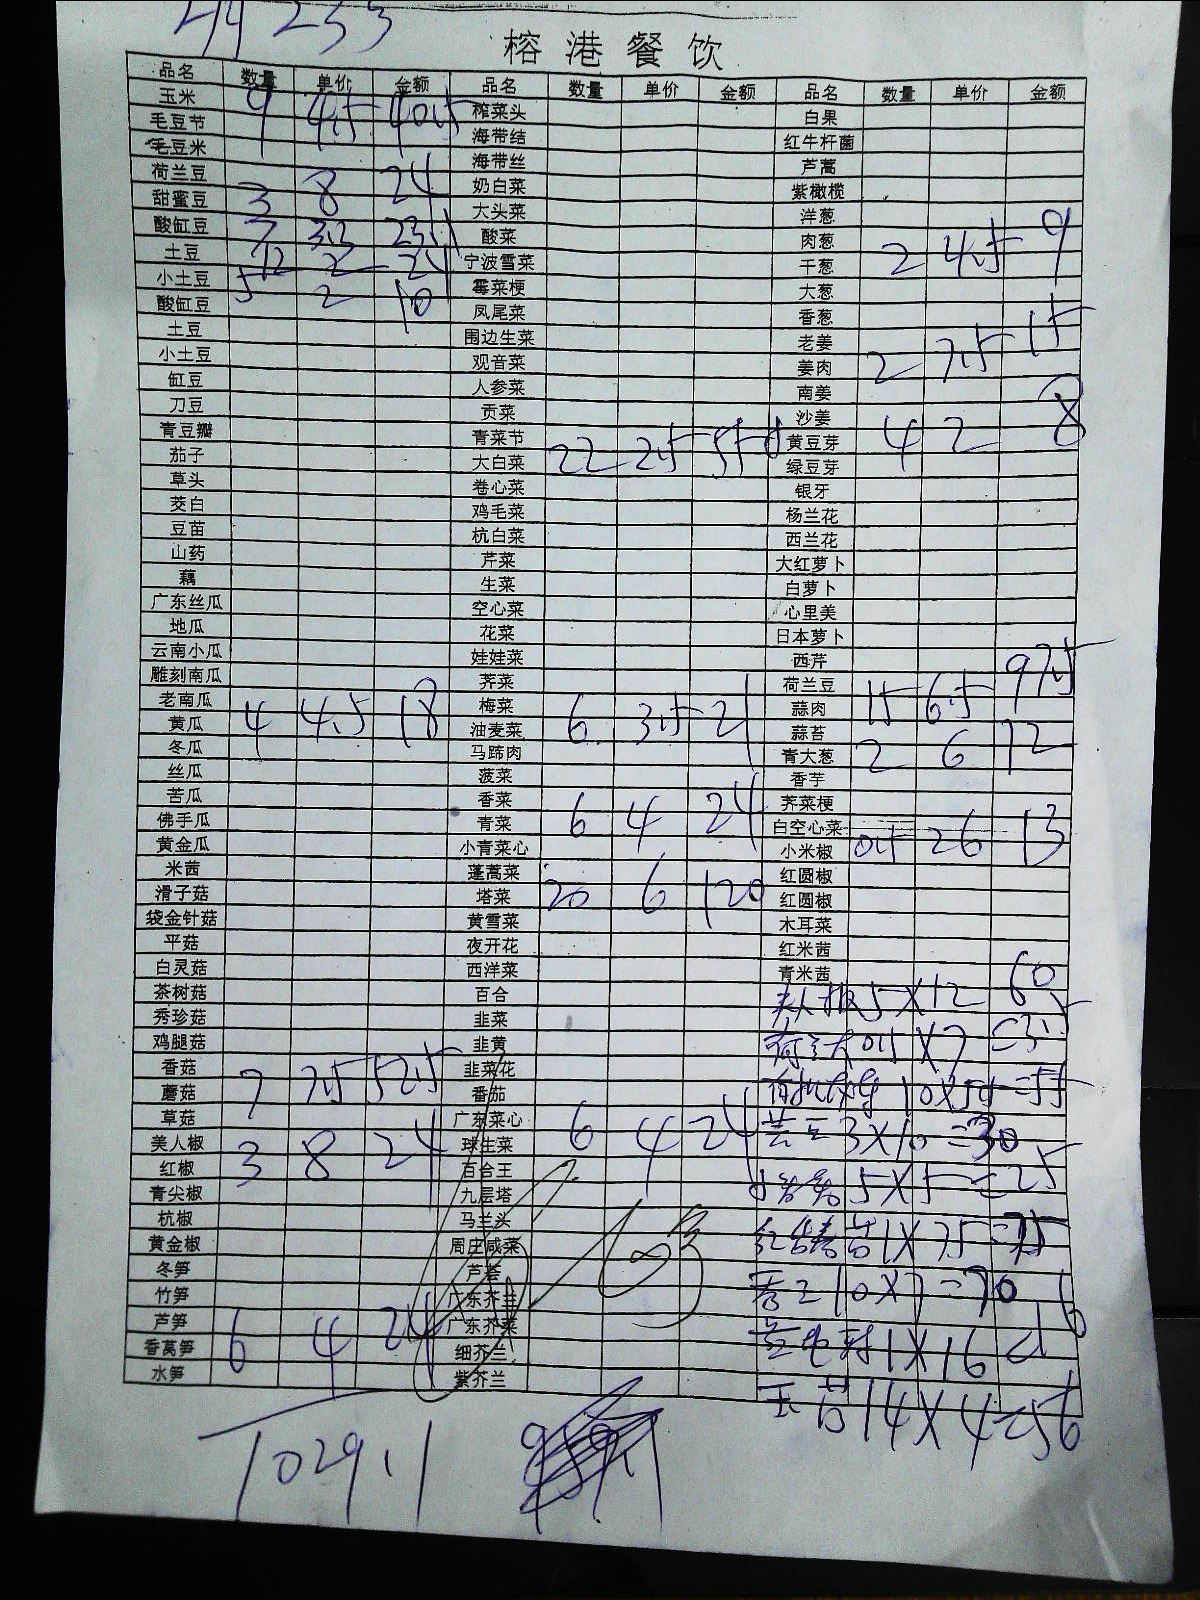 44253
榕港餐饮
品名 数量 单价 金额 品名 数量 单价 金额 品名 数量 单价 金额
玉米 9 4.5 40.5 榨菜头 白果
毛豆节 海带结 红牛杆菌
毛豆米 海带丝 芦蒿
荷兰豆 奶白菜 紫橄榄
甜蜜豆 3 8 24 大头菜 洋葱
酸缸豆 7 3.3 23.1 酸菜 肉葱
土豆 12 2 24 宁波雪菜 干葱 2 4.5 9
小土豆 5 2 10 霉菜梗 大葱
酸缸豆 凤尾菜 香葱
土豆 围边生菜 老姜
小土豆 观音菜 姜肉 2 7.5 15
缸豆 人参菜 南姜
刀豆 贡菜 沙姜
青豆瓣 青菜节 黄豆芽 4 2 8
茄子 大白菜 22 2.5 55 绿豆芽
草头 卷心菜 银牙
茭白 鸡毛菜 杨兰花
豆苗 杭白菜 西兰花
山药 芹菜 大红萝卜
藕 生菜 白萝卜
广东丝瓜 空心菜 心里美
地瓜 花菜 日本萝卜
云南小瓜 娃娃菜 西芹
雕刻南瓜 荠菜 荷兰豆
老南瓜 梅菜 蒜肉 15 6.5 97.5
黄瓜 4 4.5 18 油麦菜 6 3.5 21 蒜苔
冬瓜 马蹄肉 青大葱 2 6 12
丝瓜 菠菜 香芋
苦瓜 香菜 荠菜梗
佛手瓜 青菜 6 4 24 白空心菜
黄金瓜 小青菜心 小米椒 0.5 26 13
米茜 蓬蒿菜 红圆椒
滑子菇 塔菜 20 6 120 红圆椒
袋金针菇 黄雪菜 木耳菜
平菇 夜开花 红米茜
白灵菇 西洋菜 青米茜
茶树菇 百合 5×12 60
秀珍菇 韭菜
鸡腿菇 韭黄 0.5×7=3.5
香菇 韭菜花
蘑菇 7 7.5 52.5 番茄 10×5.5=55
草菇 广东菜心 6 4 24
美人椒 球生菜 芸豆3×10=30
红椒 3 8 24 百合王
青尖椒 九层塔 5×5=25
杭椒 马兰头
黄金椒 周庄咸菜 1×7.5=7.5
冬笋 芦荟
竹笋 广东芥兰 10×7=70
芦笋 广东芥菜
香莴笋 6 4 24 细芥兰 1×16=16
水笋 紫芥兰
14×4=56
1029.1